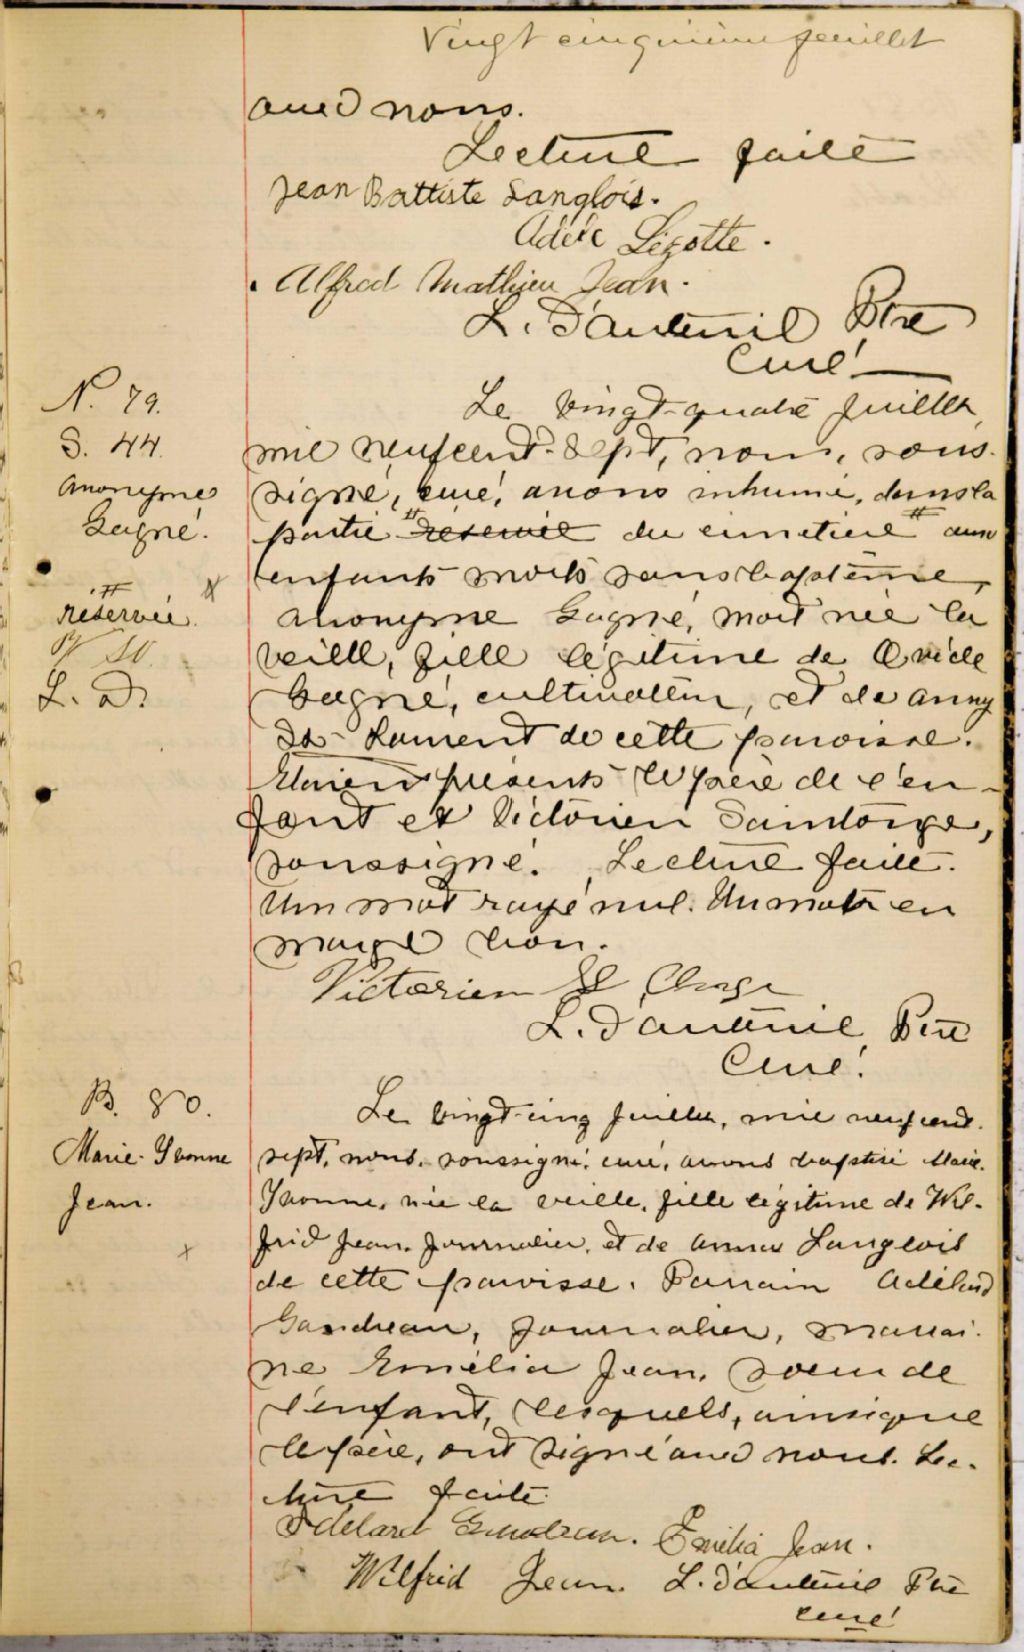 Vingt cinquième feuillet
avec nous.
Lecture faite
Jean Battiste Langlois.
Lizotte.
Alfred Mathieu Jean.
L. D'auteuil Ptre
Curé
N. 79.
S. 44.
Anonyme
Gagné.
#
réservée.
L. D.
Le vingt-quatre juillet,
mil neuf cent-sept, nous, sous-
signé, curé, avons inhumé, dans la
partie # réservée du cimetière # aux
enfants morts sans baptême,
Anonyme Gagné, mort née la
veille, fille légitime de Ovide
Gagné, cultivateur, et de Anny
St-Laurent de cette paroisse.
Etaient présents le père de l'en-
fant et Victorien Saintonge,
soussigné. Lecture faite.
Un mot rayé nul. Un mot en
marge bon.
Victorien St Onge
L. D'auteuil Ptre
Curé.
B. 80.
Marie-Yvonne
Jean.
Le vingt-cinq juillet, mil neuf cent-
sept, nous, soussigné, curé, avons baptisé Marie-
Yvonne, née la veille, fille légitime de Wil-
frid Jean, journalier, et de Anna Langlois
de cette paroisse. Parrain Adélard
Gaudreau, journalier, marrai-
ne Emélia Jean, soeur de
l'enfant, lesquels, ainsi que
le père, ont signé avec nous. Lec-
ture faite
Adelard Gaudreau. Emélia Jean.
Wilfrid Jean. L. D'auteuil Ptre
curé